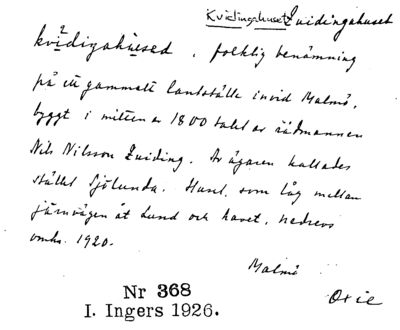 Kvidingahuset Quidingahuset
kvìdigahúsed, folklig benämning
på ett gammalt landställe invid Malmö,
byggt i mitten av 1800 talet av rådmannen
Nils Nilsson Quiding. Av ägaren kallades
stället Sjölunda. Huset, som låg mellan
järnvägen åt Lund och havet, nedrevs
omkr. 1920.
Malmö
Oxie
Nr 368
I. Ingers 1926.